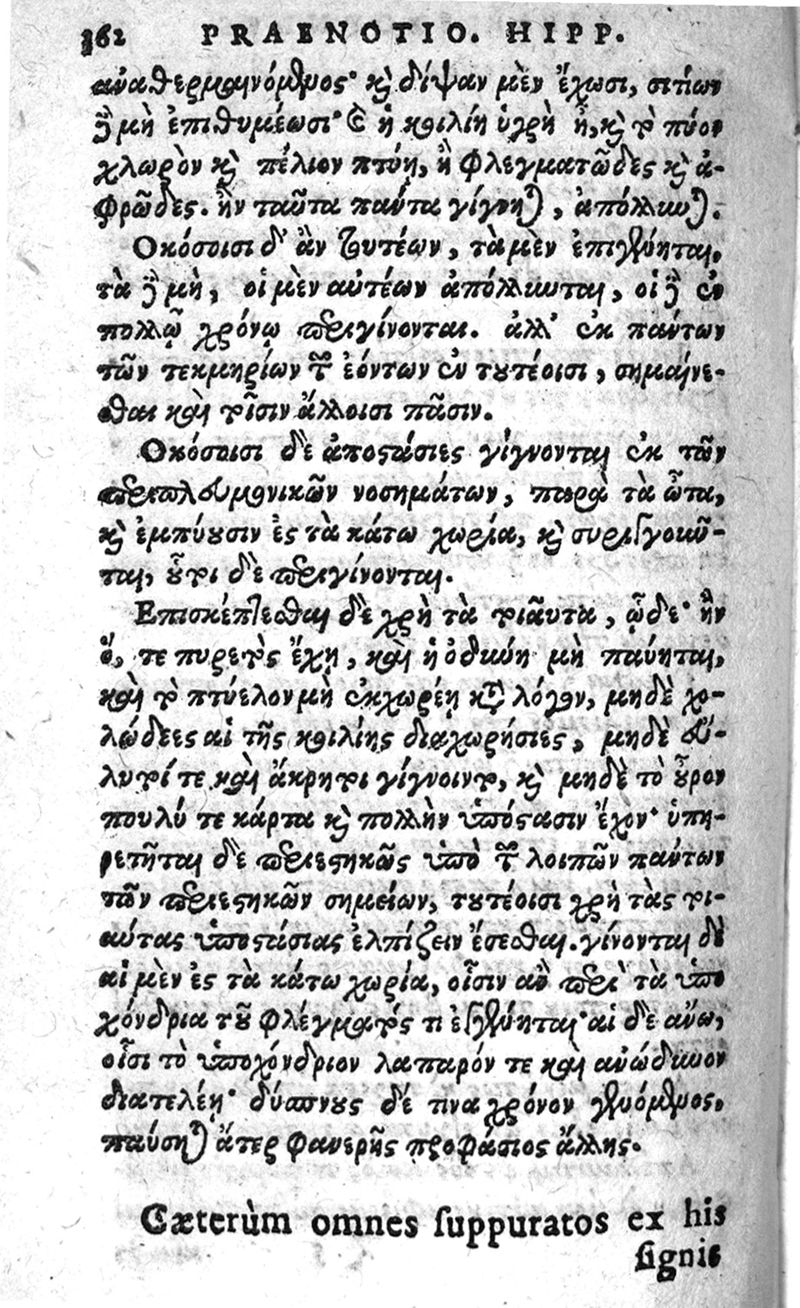 362 PRAENOTIO. HIPP.
ἀναθερμαινόμενος· καὶ δίψαν μὲν ἔχωσι, σιτίων
δὲ μὴ ἐπιθυμέωσι· καὶ ἡ κοιλίη ὑγρὴ ᾖ, καὶ τὸ πύον
χλωρὸν καὶ πέλιον πτύῃ, ἢ φλεγματῶδες καὶ ἀ-
φρῶδες. ἢν ταῦτα πάντα γίγνηται, ἀπόλλυνται.
Οκόσοισι δ' ἂν τουτέων, τὰ μὲν ἐπιγένηται,
τὰ δὲ μὴ, οἱ μὲν αὐτέων ἀπόλλυνται, οἱ δὲ ἐν
πολλῷ χρόνῳ περιγίνονται. ἀλλ' ἐκ πάντων
τῶν τεκμηρίων τῶν ἐόντων ἐν τουτέοισι, σημαίνε-
σθαι καὶ τοῖσιν ἄλλοισι πᾶσιν.
Οκόσοισι δὲ ἀποστάσιες γίγνονται ἐκ τῶν
περιπλουμονικῶν νοσημάτων, παρὰ τὰ ὦτα,
καὶ ἐμπύουσιν ἐς τὰ κάτω χωρία, καὶ συριγγοῦν-
ται, οὗτοι δὲ περιγίνονται.
Επισκέπτεσθαι δὲ χρὴ τὰ τοιαῦτα, ὧδε· ἢν
ὅ, τε πυρετὸς ἔχῃ, καὶ ἡ ὀδύνη μὴ παύηται,
καὶ τὸ πτύελον μὴ ἐκχωρέῃ κατὰ λόγον, μηδὲ χο-
λώδεες αἱ τῆς κοιλίης διαχωρήσιες, μηδὲ εὔ-
λυτοί τε καὶ ἄκρητοι γίγνοιντο, καὶ μηδὲ τὸ οὖρον
πουλύ τε κάρτα καὶ πολλὴν ὑπόστασιν ἔχον· ὑπη-
ρετῆται δὲ περιεστηκῶς ὑπὸ τῶν λοιπῶν πάντων
τῶν περιεστηκῶν σημείων, τουτέοισι χρὴ τὰς τοι-
αύτας ὑποστάσιας ἐλπίζειν ἔσεσθαι. γίνονται δὲ
αἱ μὲν ἐς τὰ κάτω χωρία, οἷσιν ἂν περὶ τὰ ὑπο
χόνδρια τοῦ φλέγματός τι ἐγγένηται· αἱ δὲ ἄνω,
οἷσι τὸ ὑποχόνδριον λαπαρόν τε καὶ ἀνώδυνον
διατελέῃ· δύσπνους δέ τινα χρόνον γενόμενος,
παύσηται ἄτερ φανερῆς προφάσιος ἄλλης.
Cæterùm omnes suppuratos ex his
signis